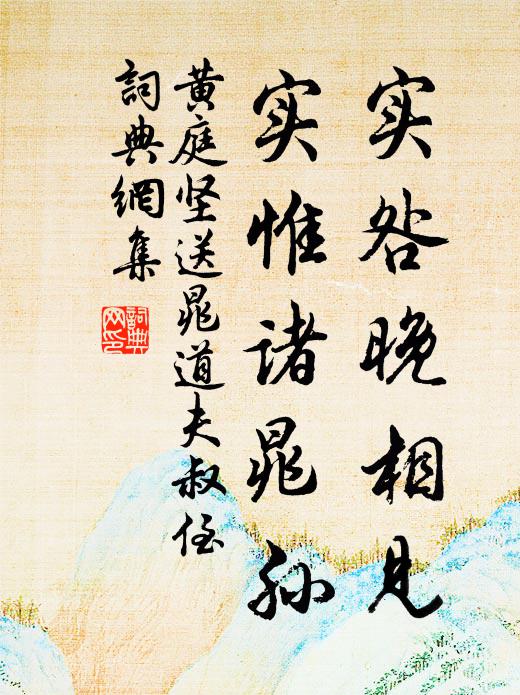 实咎晚相见
实惟诸晁孙
黄庭坚送晁道夫叔侄
詞典網集
詞典网印